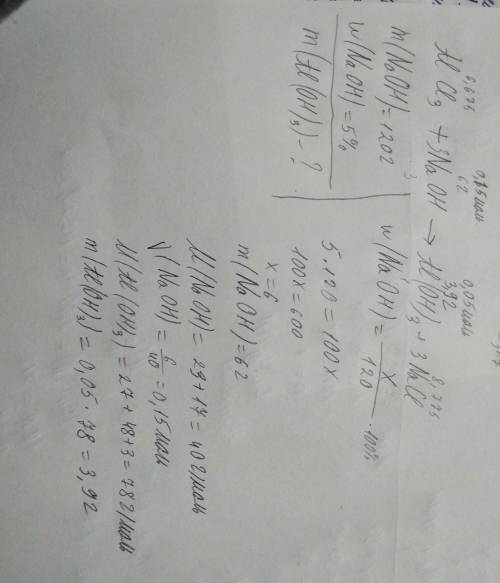 6,675 0,15моль 0,05моль
6г 3,9г 8,775
AlCl₃ + 3NaOH → Al(OH)₃ + 3NaCl
m(NaOH)=120г
w(NaOH)=5%
m(Al(OH)₃) - ?
w(NaOH) = x/120 · 100%
5·120 = 100x
100x = 600
x = 6
m(NaOH)=6г
M(NaOH) = 23+17 = 40г/моль
ν(NaOH) = 6/40 = 0,15моль
M(Al(OH)₃) = 27+48+3 = 78г/моль
m(Al(OH)₃) = 0,05·78 = 3,9г